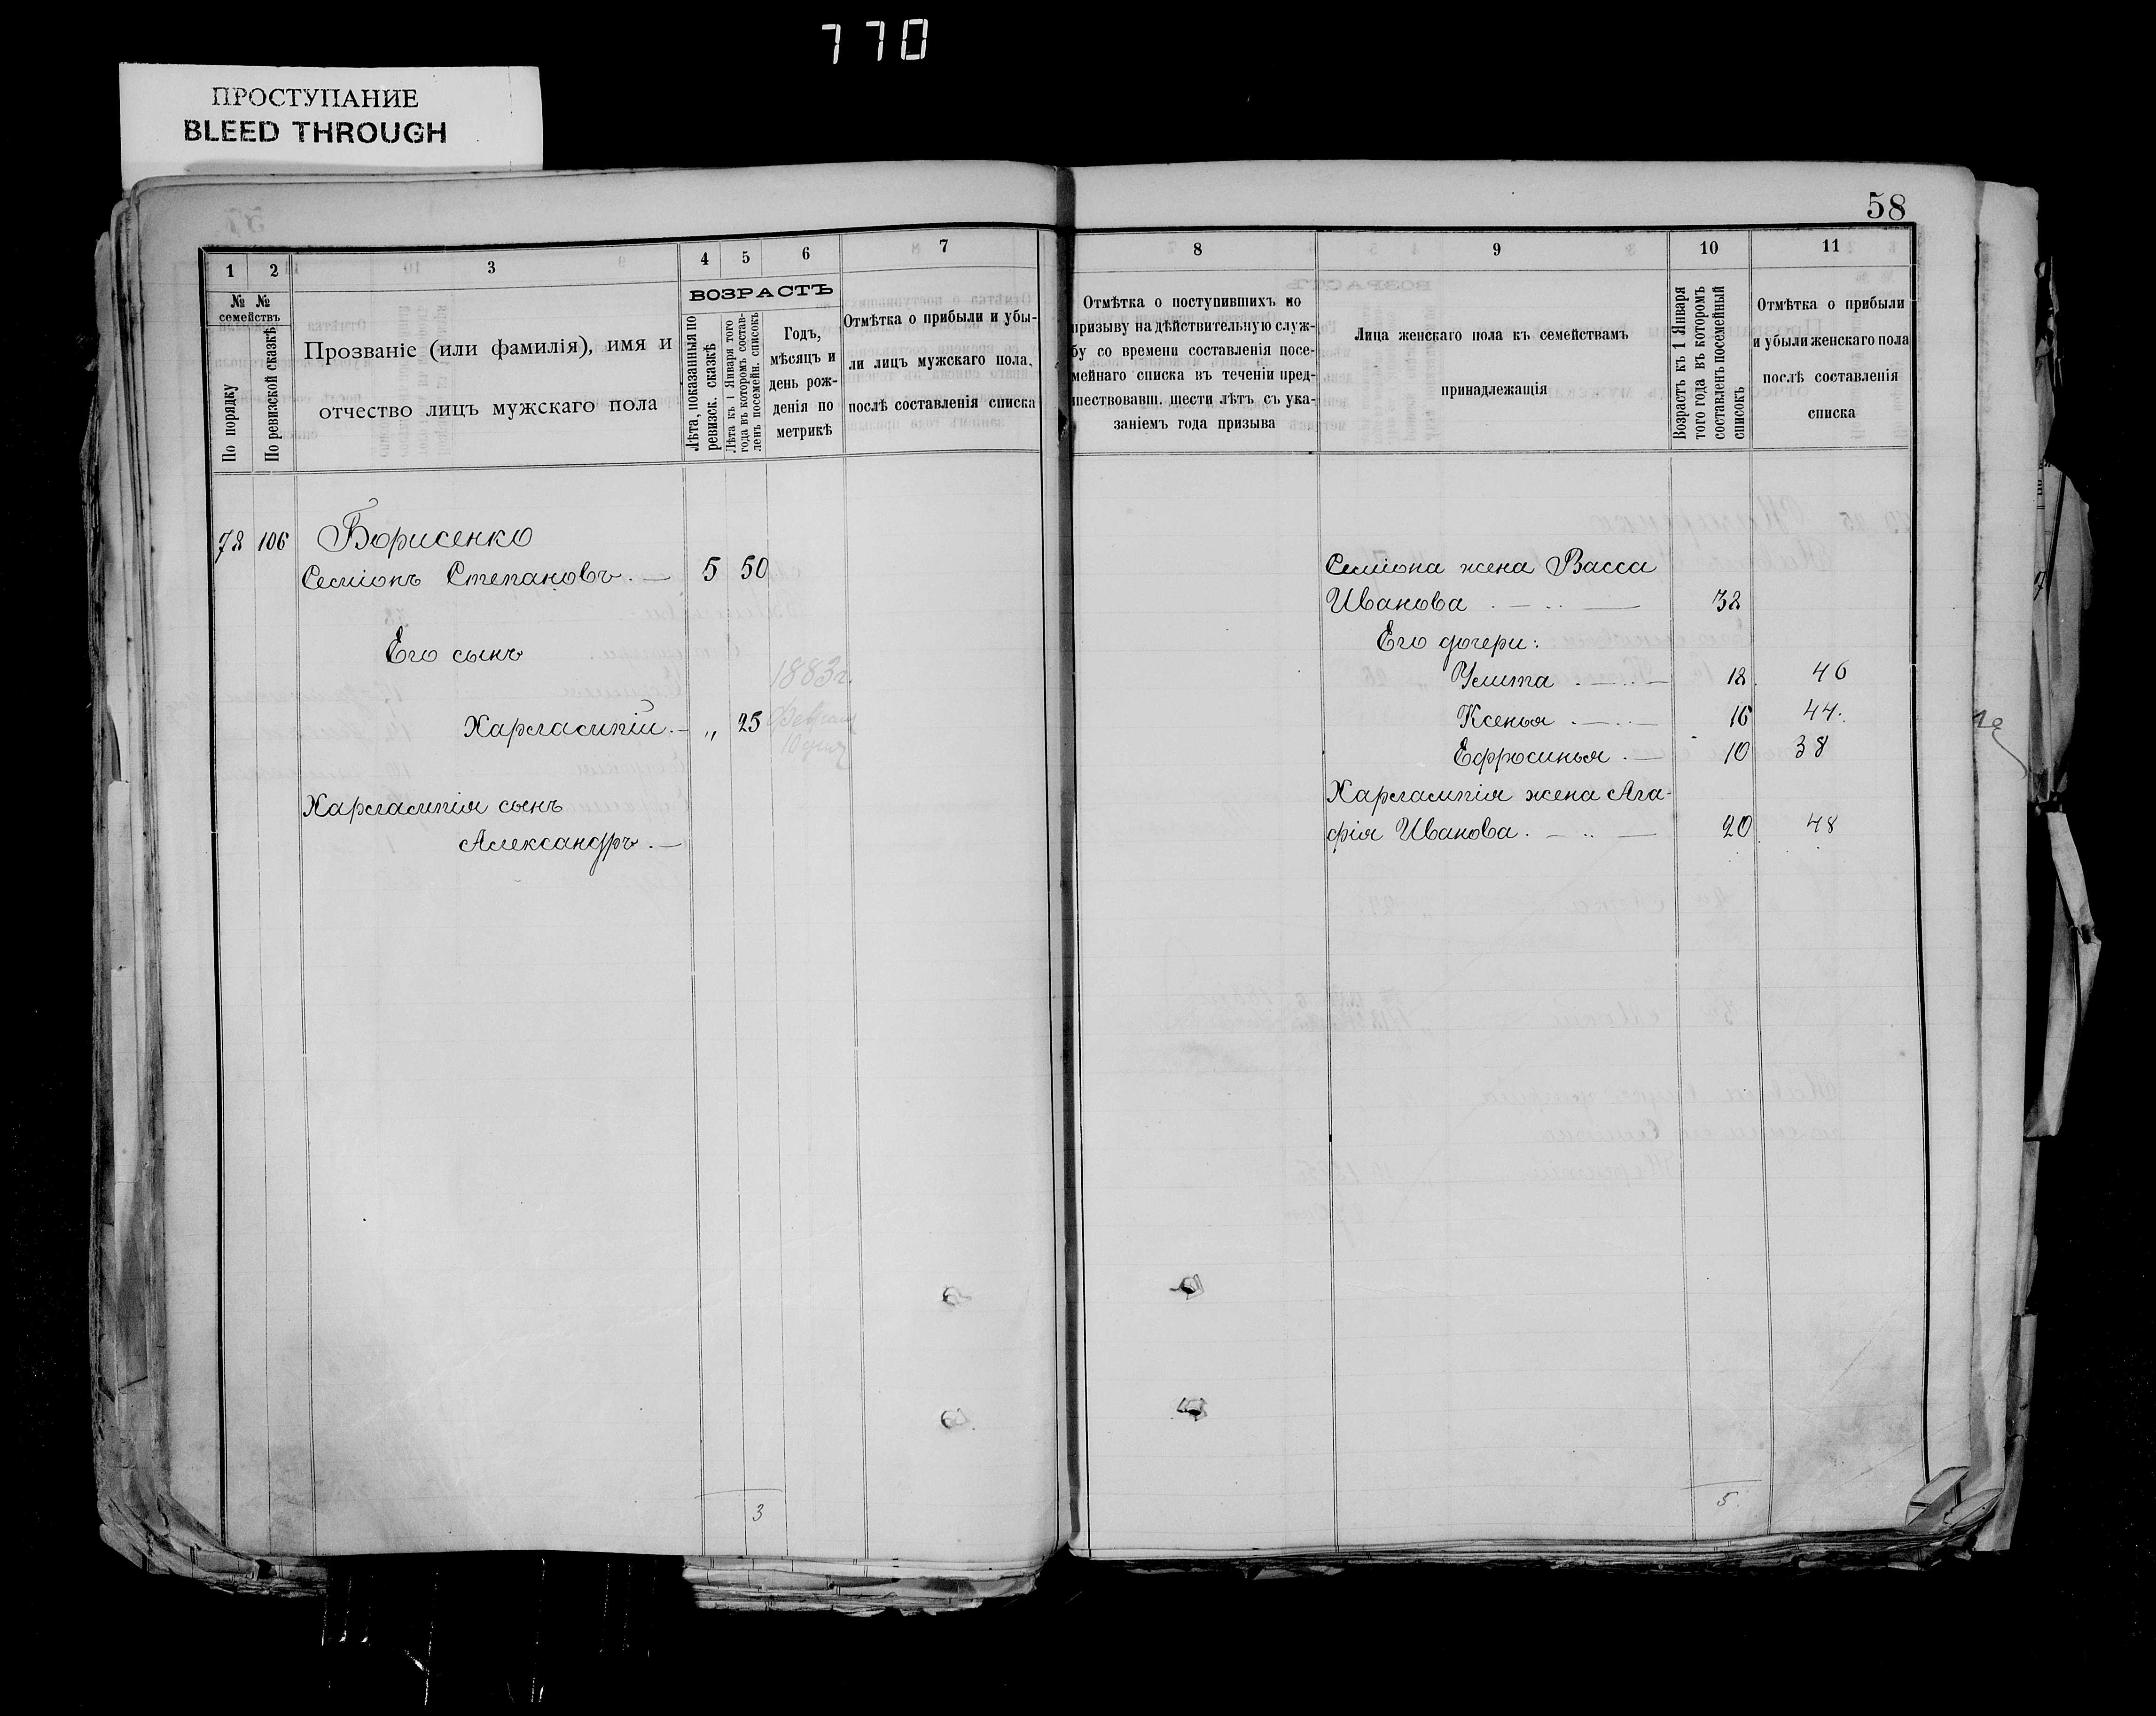 770
ПРОСТУПАНИЕ
BLEED THROUGH
58
1 2 3 4 5 6 7
№ № семействъ
По порядку
По ревизской сказкѣ
Прозваніе (или фамилія), имя и
отчество лицъ мужскаго пола
ВОЗРАСТЪ
Лѣта, показанныя по
ревизск. сказкѣ
Лѣта къ 1 Января того
года въ которомъ состав-
ленъ посемейн. списокъ
Годъ,
мѣсяцъ и
день рож-
денія по
метрикѣ
Отмѣтка о прибыли и убы-
ли лицъ мужскаго пола,
послѣ составленія списка
78 106 Борисенко
Семіонъ Степановъ. — 5 50
Его сынъ
1883г.
Харлампій. — „ 25 Февраля
10 дня
Харлампія сынъ
Александръ. —
3
8 9 10 11
Отмѣтка о поступившихъ по
призыву на дѣйствительную служ-
бу со времени составленія посе-
мейнаго списка въ теченіи пред-
шествовавш. шести лѣтъ съ ука-
заніемъ года призыва
Лица женскаго пола къ семействамъ
принадлежащія
Возрастъ къ 1 Января
того года въ которомъ
составленъ посемейный
списокъ
Отмѣтка о прибыли
и убыли женскаго пола
послѣ составленія
списка
Семіона жена Васса
Иванова 38
Его дочери:
Улита 18 46
Ксенья 16 44.
Ефросинья 10 38
Харлампія жена Ага-
фія Иванова. 20 48
5